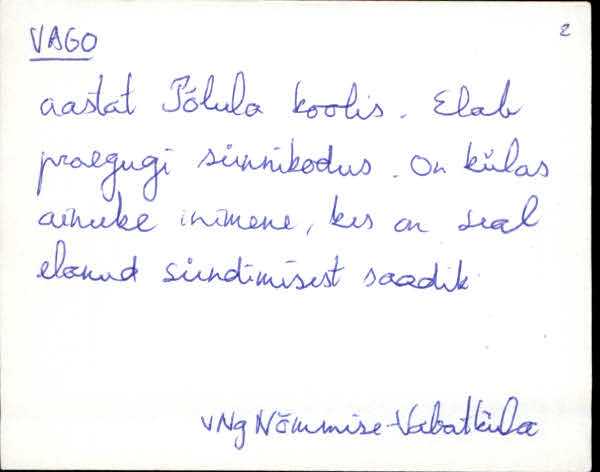 VAGO
2
aastat Põlula koolis. Elab
praegugi sünnikodus. On külas
ainuke inimene, kes on seal
elanud sündimisest saadik
VNg Nõmmise-Vabatküla